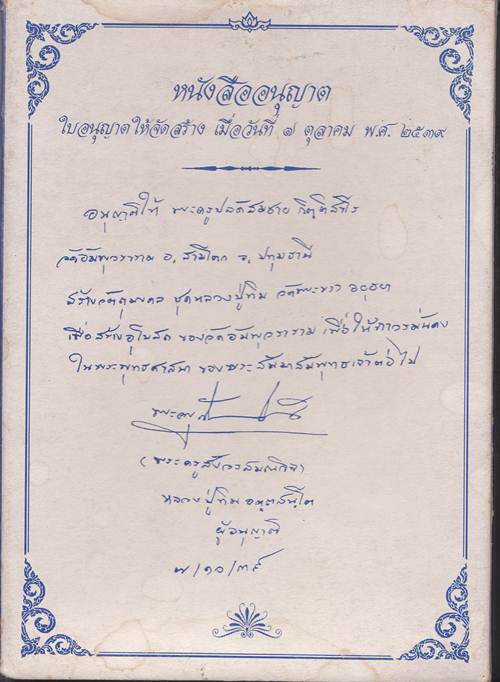 หนังสืออนุญาต
ใบอนุญาตให้จัดสร้าง เมื่อวันที่ ๗ ตุลาคม พ.ศ. ๒๕๓๙
อนุญาตให้ พระครูปลัดสมชาย กิตฺติสาโร
วัดอัมพุวราราม อ. สามโคก จ. ปทุมธานี
สร้างวัตถุมงคล ชุดหลวงปู่ทิม วัดพระขาว อยุธยา
เพื่อสร้างอุโบสถ ของวัดอัมพุวราราม เพื่อให้ถาวรมั่นคง
ในพระพุทธศาสนา ของพระสัมมาสัมพุทธเจ้าต่อไป
(พระครูสังวรสมณกิจ)
หลวงปู่ทิม อตฺตสนฺโต
ผู้อนุญาติ
๗/๑๐/๓๙